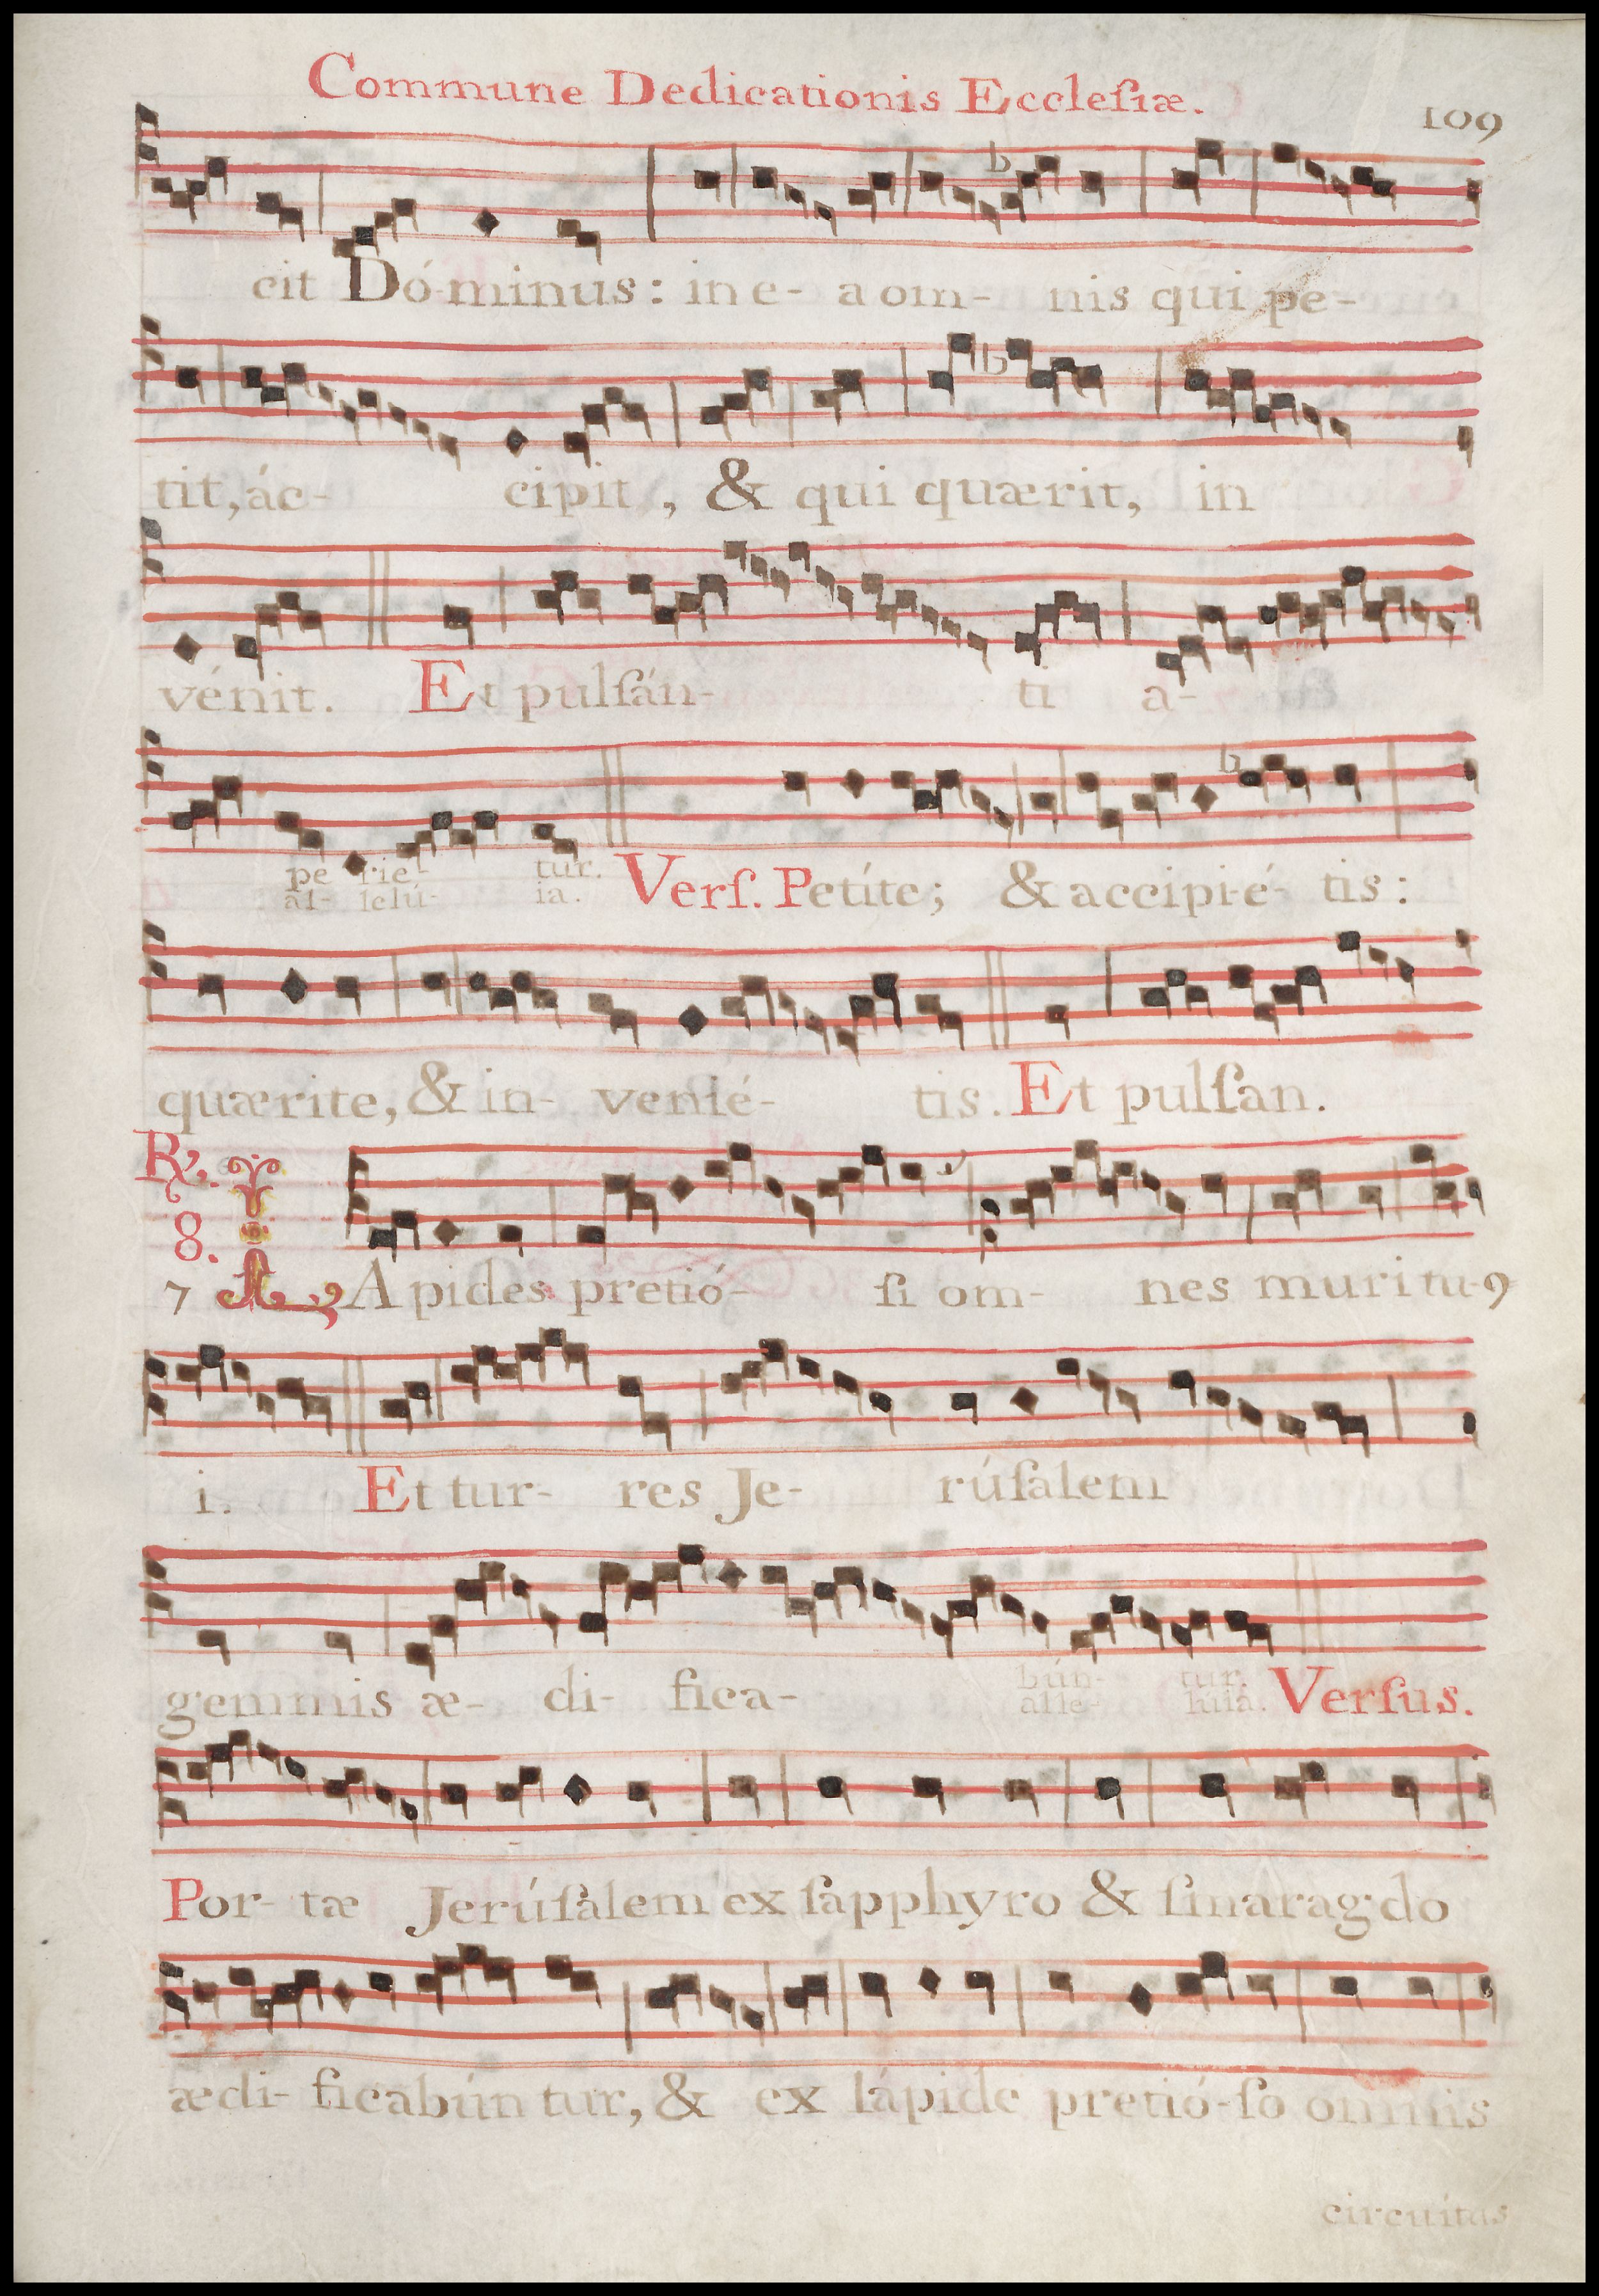 Commune Dedicationis Eccleſiæ.
109
cit Dó-minus: in e- a om- nis qui pe-
tit, ác- cipit, & qui quærit, in
vénit. Et pulſán- ti a-
pe rie- tur.
al- lelú- ia.
Verſ. Petíte; & accipi-é- tis:
quærite, & in- venié- tis. Et pulſan.
℟.
8.
7 LApides pretió- ſi om- nes muri tu-9
i. Et tur- res Je- rúſalem
gemmis æ- di- fica-
bún- tur.
alle- lúia.
Verſus.
Por- tæ Jerúſalem ex ſapphyro & ſmaragdo
ædi- ficabún tur, & ex lápide pretió-ſo omnis
circuitus